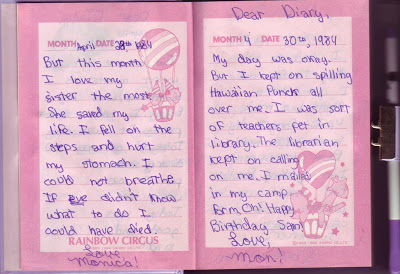 MONTH April DATE 28th, 1984
But this month
I love my
sister the most.
She saved my
life. I fell on the
steps and hurt
my stomach. I
could not breathe
If Eve didn't know
what to do I
could have died.
RAINBOW CIRCUS
Love,
Monica!
Dear Diary,
MONTH 4 DATE 30th, 1984
My day was okay.
But I kept on spilling
Hawaiian Punch all
over me. I was sort
of teachers pet in
library. The librarian
kept on calling
on me. I mailed
in my camp
form. Oh! Happy
Birthday Sam
Love,
Mon!